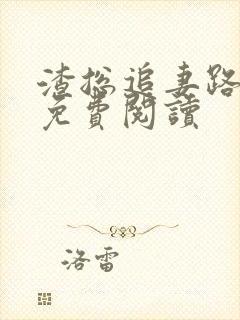 渣総追妻路
免費閱讀
洛雷